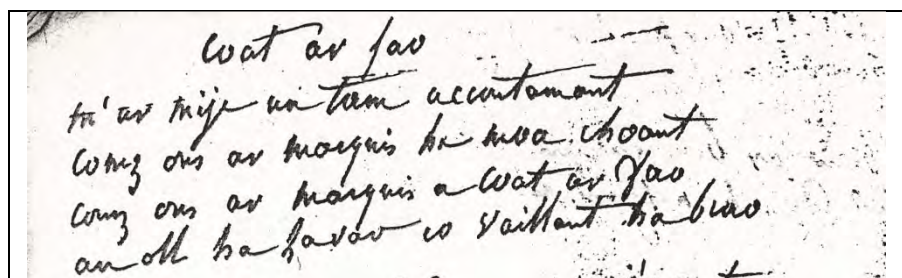 Coat ar fao
m' ar mije un tam accoutamant
Comz ous ar marquis ha moa choant
Comz ous ar marquis a Coat ar fao
an oll ha lavar eo vaillant ha brao